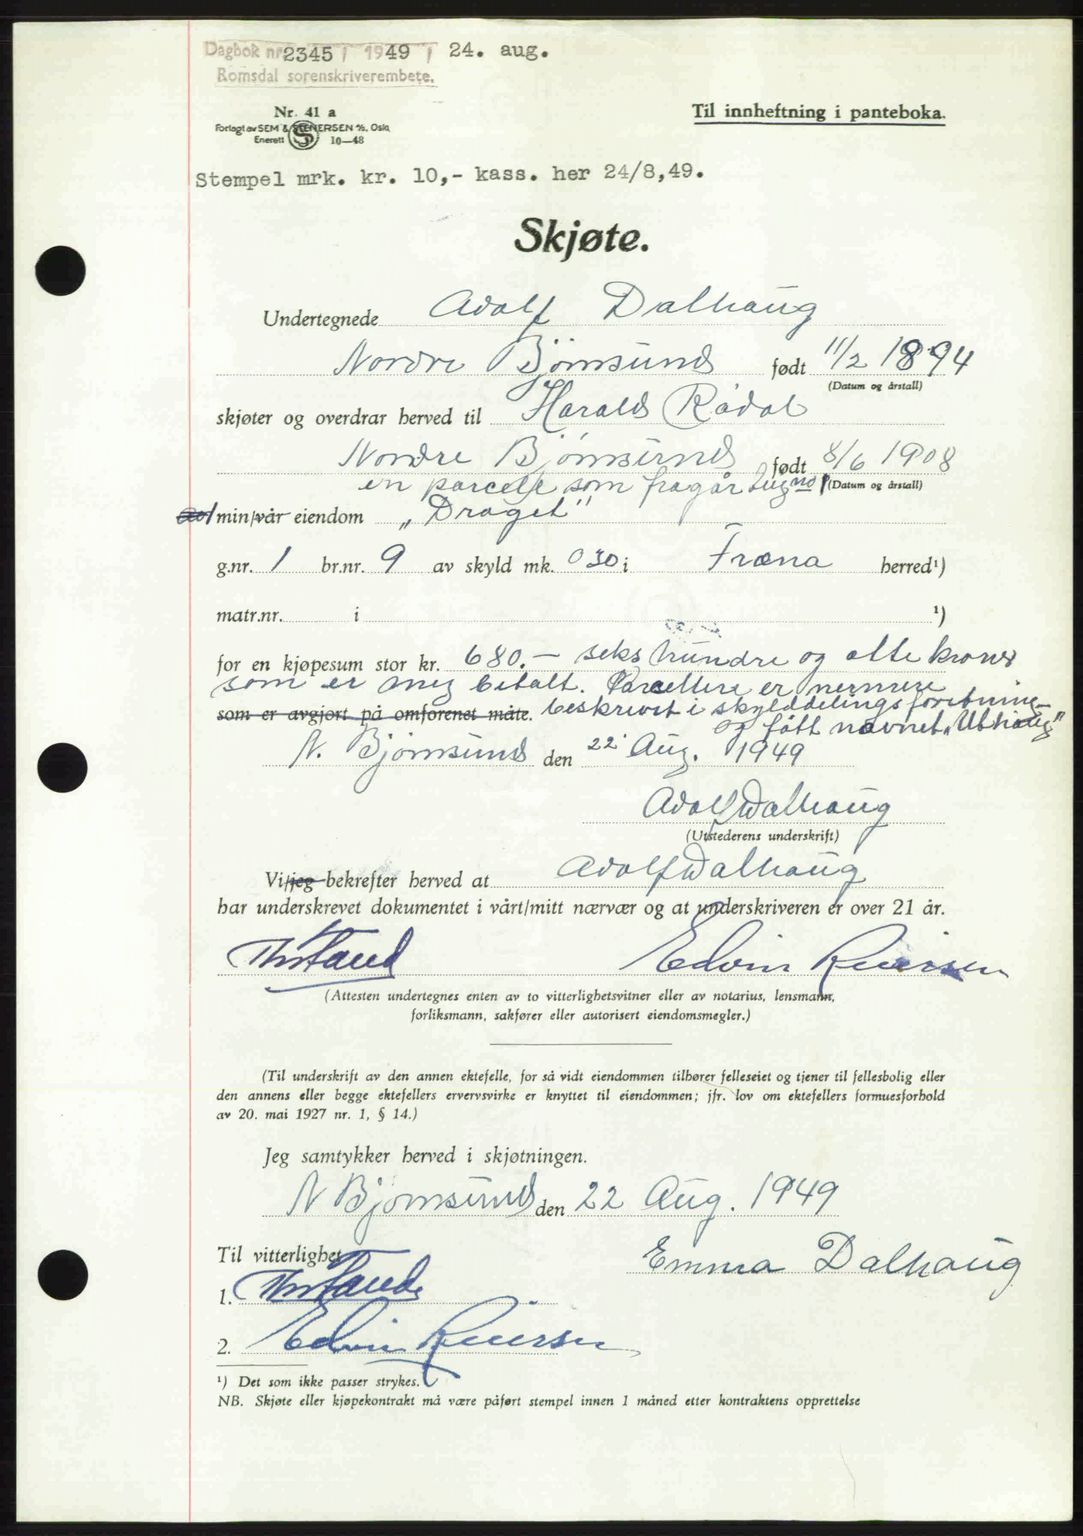 Dagbok nr. 2345 / 1949 / 24. aug.
Romsdal sorenskriverembete.
Nr. 41 a
Til innheftning i panteboka.
Forlagt av SEM & STENERSEN A/S, Oslo
Enerett 10—48
Stempel mrk. kr. 10,- kass. her 24/8,49.
Skjøte.
Undertegnede Adolf Dalhaug
Nordre Bjørnsund født 11/2 1894
(Datum og årstall)
skjøter og overdrar herved til Harald Rødal
Nordre Bjørnsund født 8/6 1908
(Datum og årstall)
en parcelle som fragår
av min/vår eiendom „Draget"
g.nr. 1 br.nr. 9 av skyld mk. 030 i Fræna herred¹)
matr.nr. i ¹)
for en kjøpesum stor kr. 680.— seks hundre og otte kroner
som er meg betalt. Parcellere er nermere
som er avgjort på omforenet måte. beskrevet i skylddelingsforetning
og fått navnet „Uthaug"
N. Bjørnsund den 22 Aug. 1949
Adolf Dalhaug
(Utstederens underskrift)
Vi/jeg bekrefter herved at Adolf Dalhaug
har underskrevet dokumentet i vårt/mitt nærvær og at underskriveren er over 21 år.
Edvin
(Attesten undertegnes enten av to vitterlighetsvitner eller av notarius, lensmann,
forliksmann, sakfører eller autorisert eiendomsmegler.)
(Til underskrift av den annen ektefelle, for så vidt eiendommen tilhører felleseiet og tjener til fellesbolig eller
den annens eller begge ektefellers ervervsvirke er knyttet til eiendommen; jfr. lov om ektefellers formuesforhold
av 20. mai 1927 nr. 1, § 14.)
Jeg samtykker herved i skjøtningen.
N Bjørnsund den 22 Aug. 1949
Til vitterlighet
Emma Dalhaug
1.
2. Edvin
¹) Det som ikke passer strykes.
NB. Skjøte eller kjøpekontrakt må være påført stempel innen 1 måned etter kontraktens opprettelse